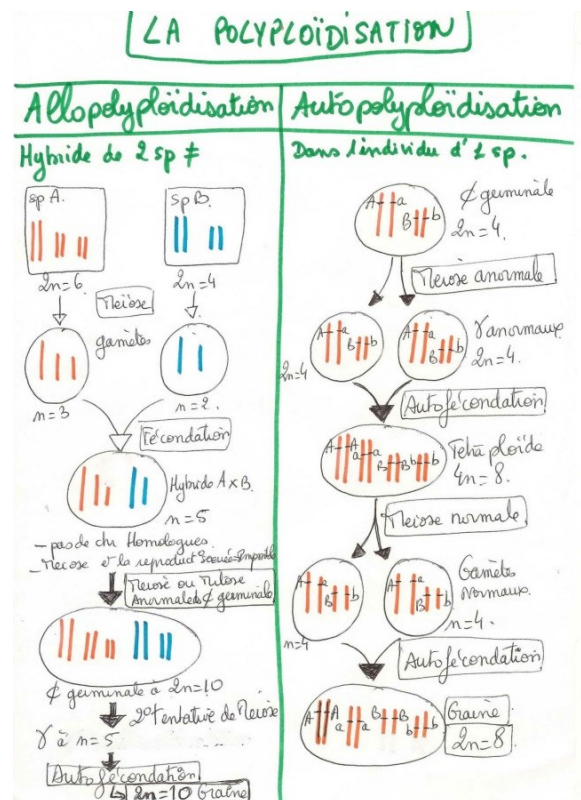 LA POLYPLOÏDISATION
Allopolyploïdisation
Hybride de 2 sp ≠
sp A.
sp B.
2n=6.
2n=4
Meïose
gamètes
n=3
n=2.
Fécondation
Hybride A x B.
n=5
- pas de chr Homologues.
- Meiose et la reproduct Sexuée Impossible
Meiose ou Mitose
Anormales ¢ germinale
¢ germinale à 2n=10
2º tentative de Meiose
γ à n=5
Autofécondation
↳ 2n=10 Graine
Autopolyploïdisation
Dans l'individu d'1 sp.
A a
B b
¢ germinale
2n=4.
Meiose anormale
A a
B b
A a
B b
2n=4
γ anormaux
2n=4.
Autofécondation
A A
a a
B B b b
Tetraploïde
4n=8.
Meiose normale
A a
B b
A a
B b
n=4
Gamètes
Normaux.
n=4.
Autofécondation
A A a a B B b b
Graine
2n=8.